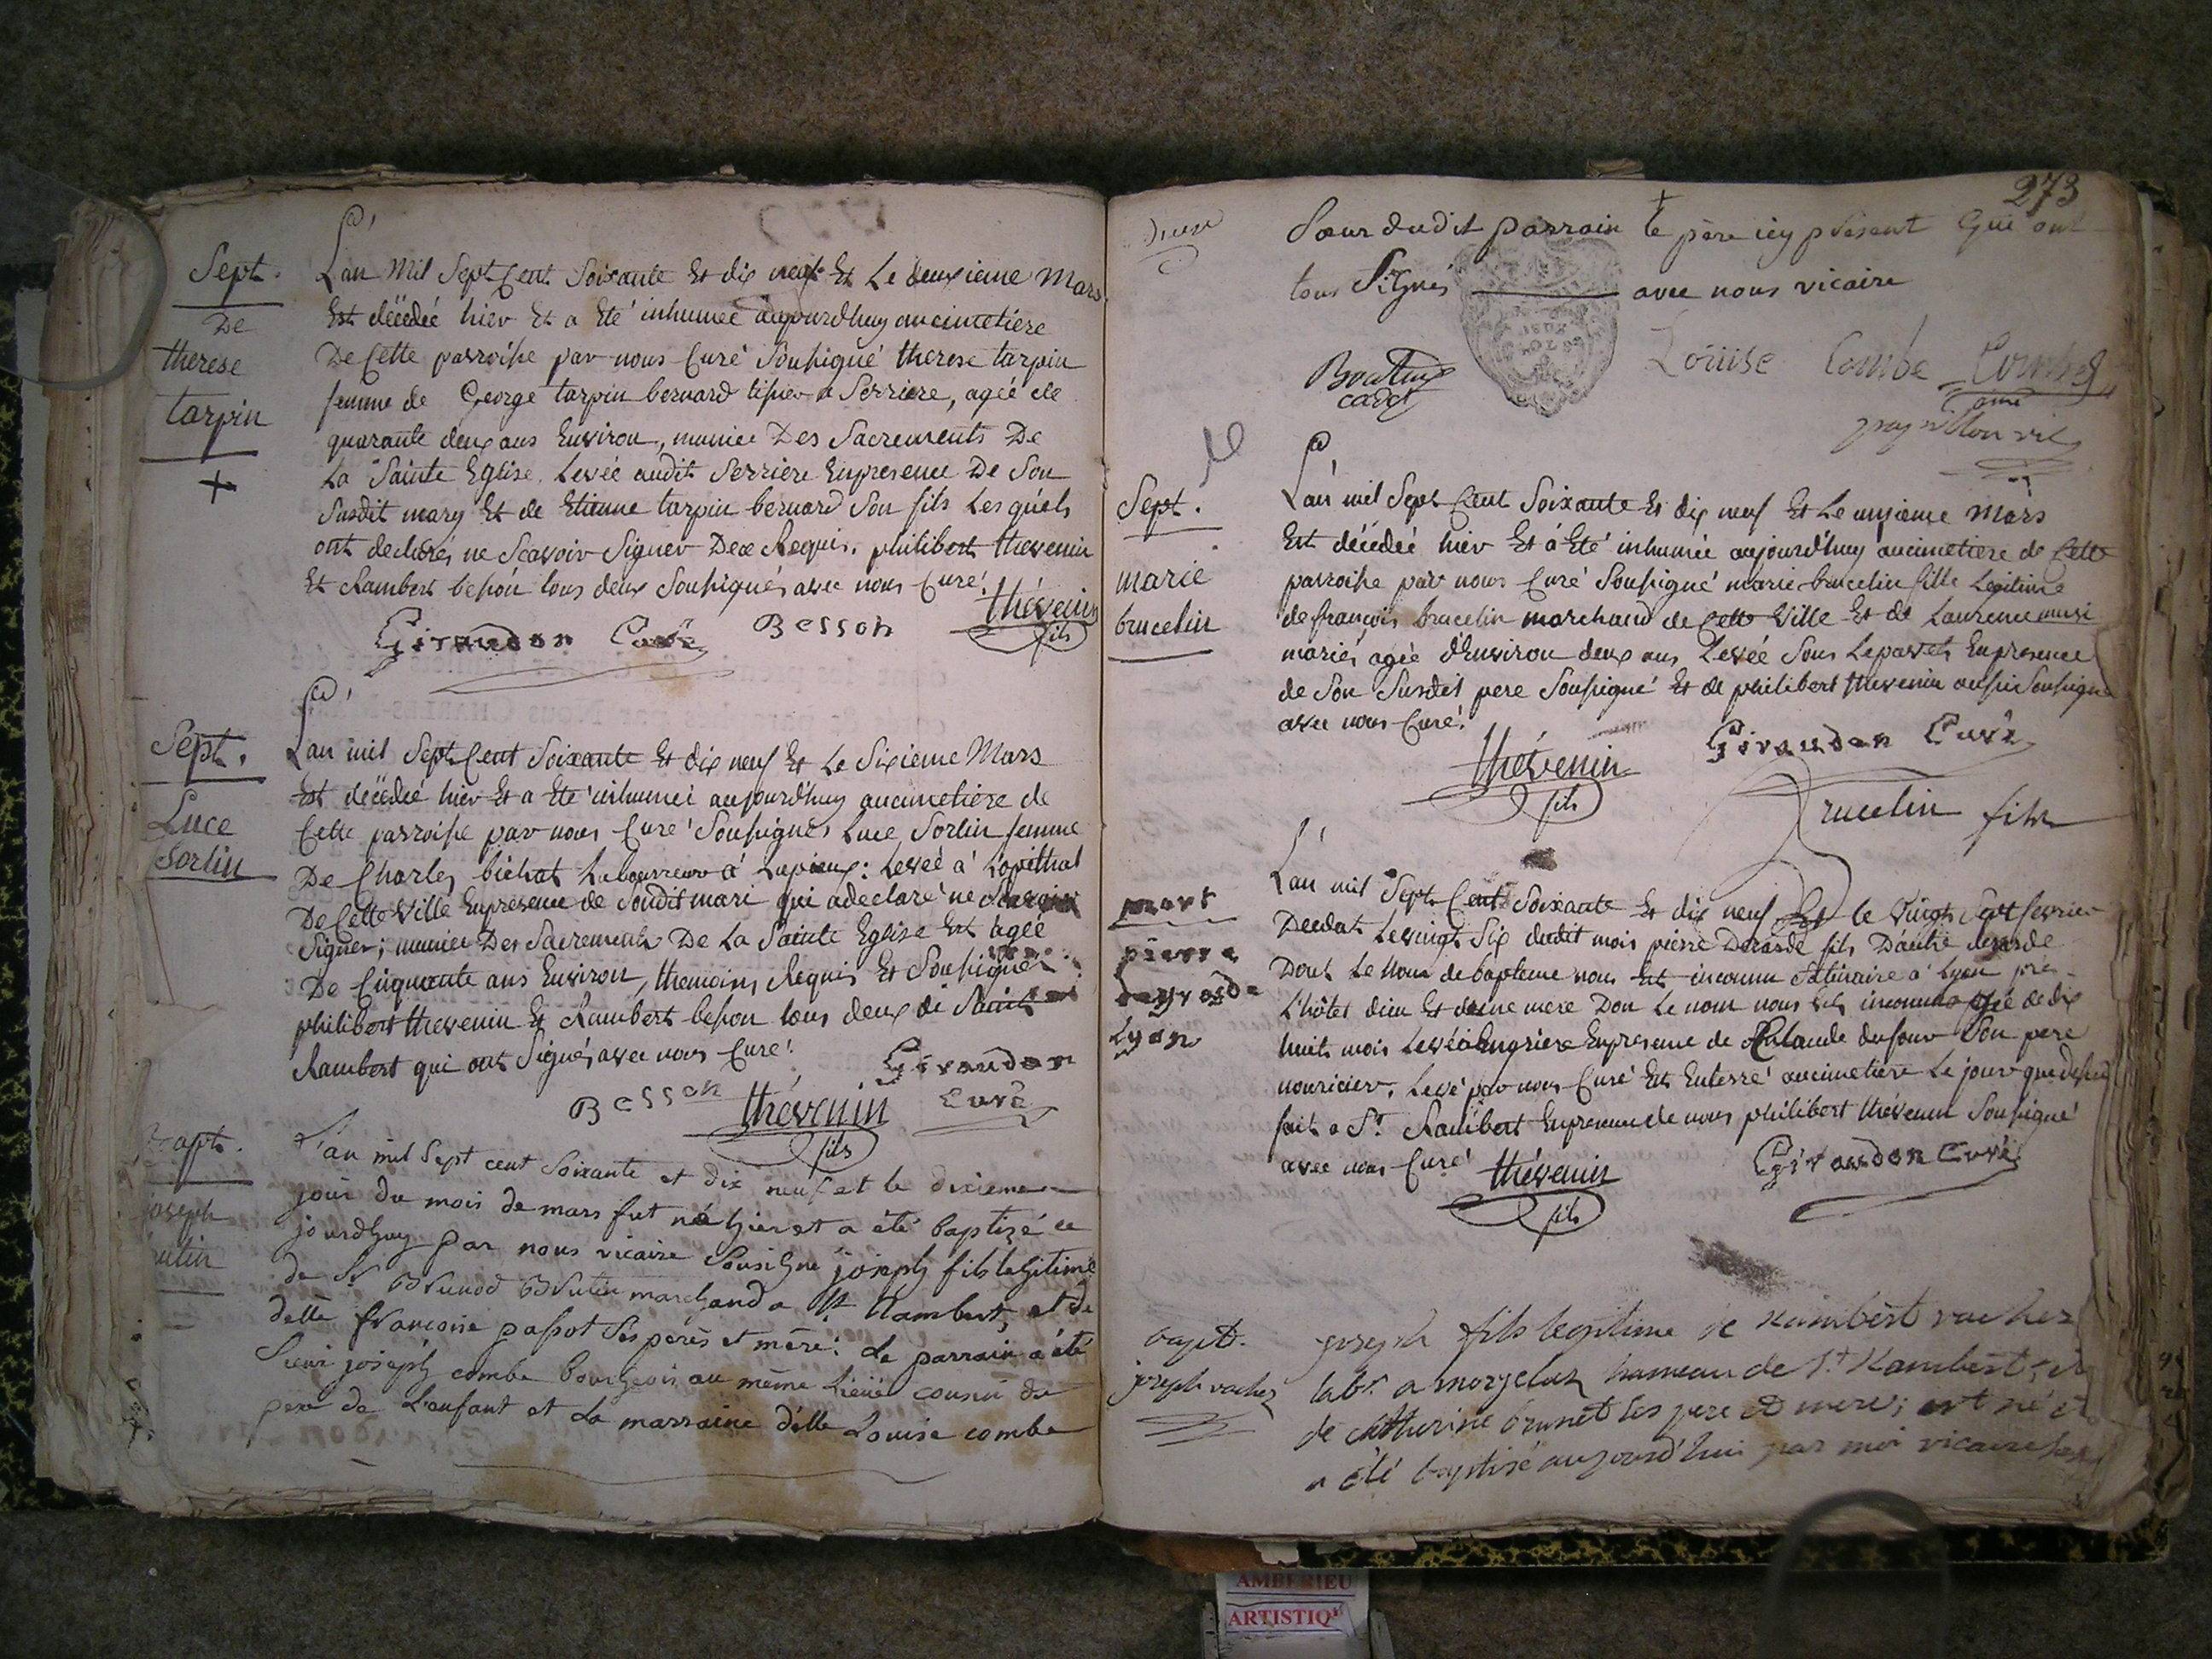 Sept.
De
therese
tarpin
L'an Mil Sept Cent Soixante Et dix neuf Et Le deuxieme Mars
Est décédée hier Et a Eté inhumée aujourdhuy au cimetiere
De Cette parroisse par nous Curé Soussigné therese tarpin
femme de George tarpin bernard a Serriere, agée de
quarante deux ans Environ, munie Des Sacrements De
La Sainte Eglise. Levée audit Serriere Enpresence De Son
Susdit mary Et de Etienne tarpin bernard Son fils Lesquels
ont declarés ne Scavoir Signer De ce Requis. philibert thevenin
Et Rambert besson tous deux Soussignés avec nous Curé.
Giraudon Curé Besson thévenin
fils
Sept.
Luce
Sorlin
L'an mil Sept Cent Soixante Et dix neuf Et Le Sixieme Mars
Est décédée hier Et a Eté inhumée aujourd'huy aucimetiere de
Cette parroisse par nous Curé Soussignés Luce Sorlin femme
De Charles bichat Laboureur à : Levée à L'opithal
De Cette Ville Enpresence de Sondit mari qui adeclaré ne Scavoir
Signer; munie Des Sacrements De La Sainte Eglise Est agée
De Cinquante ans Environ, themoins Requis Et Soussignés
philibert thevenin Et Rambert besson tous deux de Saint
Rambert qui ont Signés avec nous Curé.
Besson thévenin Giraudon
fils Curé
Bapt.
joseph
L'an mil Sept cent Soixante et dix neuf et le dixieme
jour du mois de mars fut né hier et a été baptizé ce
jourdhuy par nous vicaire Sousigné joseph fils legitime
de Sr Brunod Brutin marchand a St Rambert, et de
delle francoise passot Ses perès et mère: Le parrain a été
Sieur joseph combe bourgeois au même Lieüe cousin du
pere de L'enfant et La marraine d'elle Louise combe
273
Sœur dudit parrain le père icy présent Qui ont
tous Signés avec nous vicaire
Louise Combe Combe
cadet
papillon vic
Sept.
marie
brucelin
L'an mil Sept Cent Soixante Et dix neuf Et Le onzieme Mars
Est décédée hier Et à Eté inhumée aujourd'huy aucimetiere de Cette
parroisse par nous Curé Soussigné marie brucelin fille Legitime
de françois brucelin marchand de Cette Ville Et de Laurence
mariés agée d'Environ deux ans Levée Sous Leparvets Enpresence
de Son Susdit pere Soussigné Et de philibert thevenin aussi Soussigné
avec nous Curé.
thévenin Giraudon Curé
fils Brucelin fils
mort
pierre
derosde
Lyon
L'an mil Sept Cent Soixante Et dix neuf Et le Vingt Sept fevrier
Decedat Levingt Six dudit mois pierre Derosde fils D'autre derosde
Dont Le Nom de bapteme nous Est inconnu à Lyon près
L'hôtel dieu Et d'une mere Don Le nom nous Est inconnu agé de dix
huit mois Enpresence de Claude dufour Son pere
nouricier. Levé par nous Curé Est Enterré aucimetiere Le jour que dessus
fait a St. Rambert Enpresence de nous philibert thévenin Soussigné
avec nous Curé. thévenin Giraudon Curé
fils
bapt.
joseph vachez
joseph fils legitime de Rambert vachez
labr. a morgelas hameau de St Rambert, et
de catherine brunet ses pere et mere; est né et
a été baptisé aujourd'hui par moi vicaire
AMBERIEU
ARTISTIQ